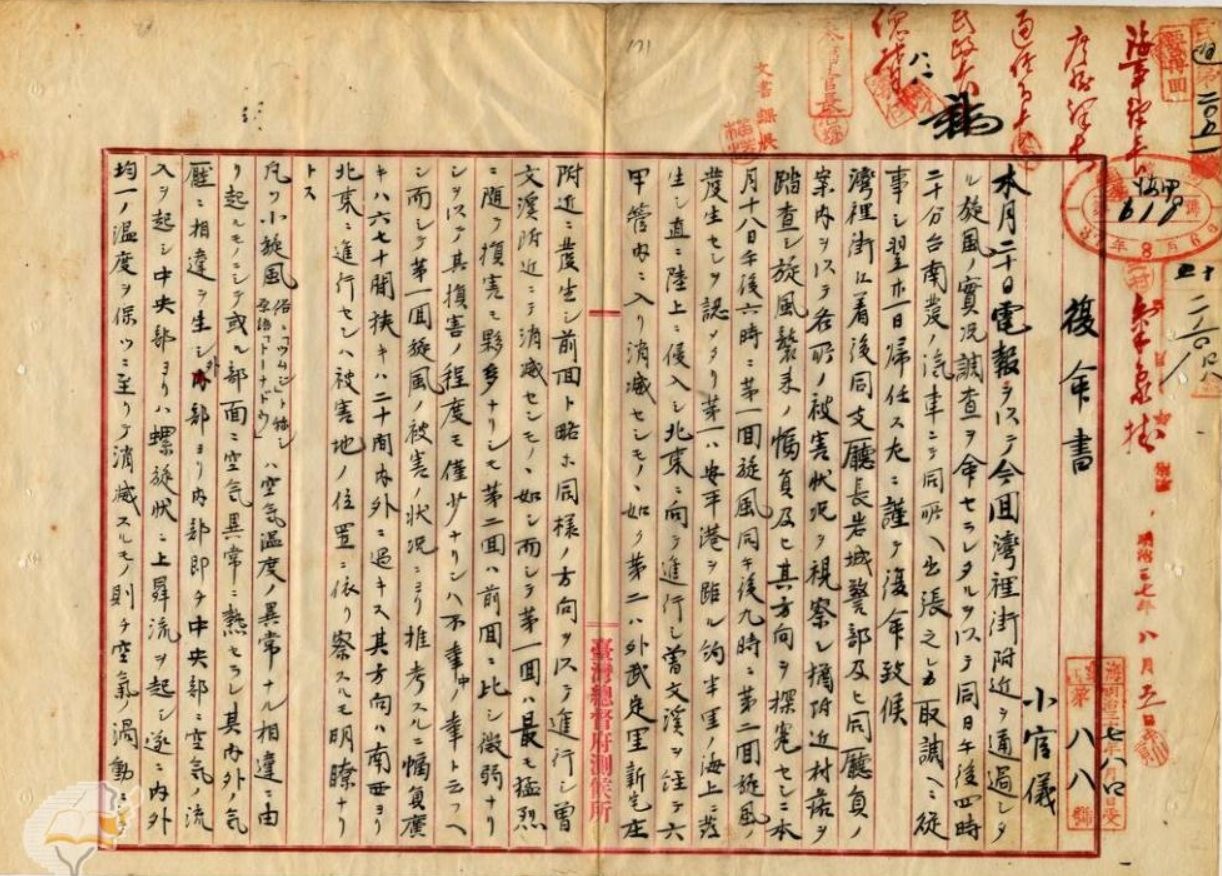 復命書
小官儀
本月二十日電報ヲ以テ今回灣裡街附近ヲ通過シタ
ル旋風ノ實況調査ヲ命セラレタルヲ以テ同日午後四時
二十分台南發ノ汽車ニテ同所ヘ出張之レカ取調ヘニ從
事シ翌廿一日帰任ス左ニ謹テ復命致候
灣裡街ニ着後同支廳長岩城警部及ヒ同廳員ノ
案内ヲ以テ各所ノ被害状況ヲ視察シ猶附近村落ヲ
踏査シ旋風襲来ノ幅員及ヒ其方向ヲ探究セシニ本
月十八日午後六時ニ第一回旋風同午後九時ニ第二回旋風ノ
發生セシヲ認メタリ第一ハ安平港ヲ距ル約半里ノ海上ニ發
生シ直ニ陸上ニ侵入シ北東ニ向テ進行シ曽文溪ヲ経テ六
甲管内ニ入リ消滅セシモノヽ如ク第二ハ外武定里新宅庄
附近ニ發生シ前回ト略ホ同様ノ方向ヲ以テ進行シ曽
文溪附近ニテ消滅セシモノヽ如シ而シテ第一回ハ最モ猛烈
ニ随テ損害モ夥多ナリシモ第二回ハ前回ニ比シ微弱ナリ
シヲ以テ其損害ノ程度モ僅少ナリシハ不幸中ノ幸ト云フヘ
シ而シテ第一回旋風ノ被害ノ状況ニヨリ推考スルニ幅員廣
キハ六七十間狭キハ二十間内外ニ過キス其方向ハ南西ヨリ
北東ニ進行セシハ被害地ノ位置ニ依リ察スルモ明瞭ナリ
トス
凡ソ小旋風俗ニ「ツムジ」ト称シ「トーナドウ」ハ空氣温度ノ異常ナル相違ニ由
リ起ルモノニシテ或ル部面ニ空氣異常ニ熱セラレ其内外ノ氣
壓ニ相違ヲ生シ外部ヨリ内部即チ中央部ニ空氣ノ流
入ヲ起シ中央部ヨリハ螺旋状ニ上昇流ヲ起シ遂ニ内外
均一ノ温度ヲ保ツニ至リテ消滅スルモノ則チ空氣ノ渦動ニ
臺灣總督府測候所
文書課長
明治三七年八月五日
第八八號
171